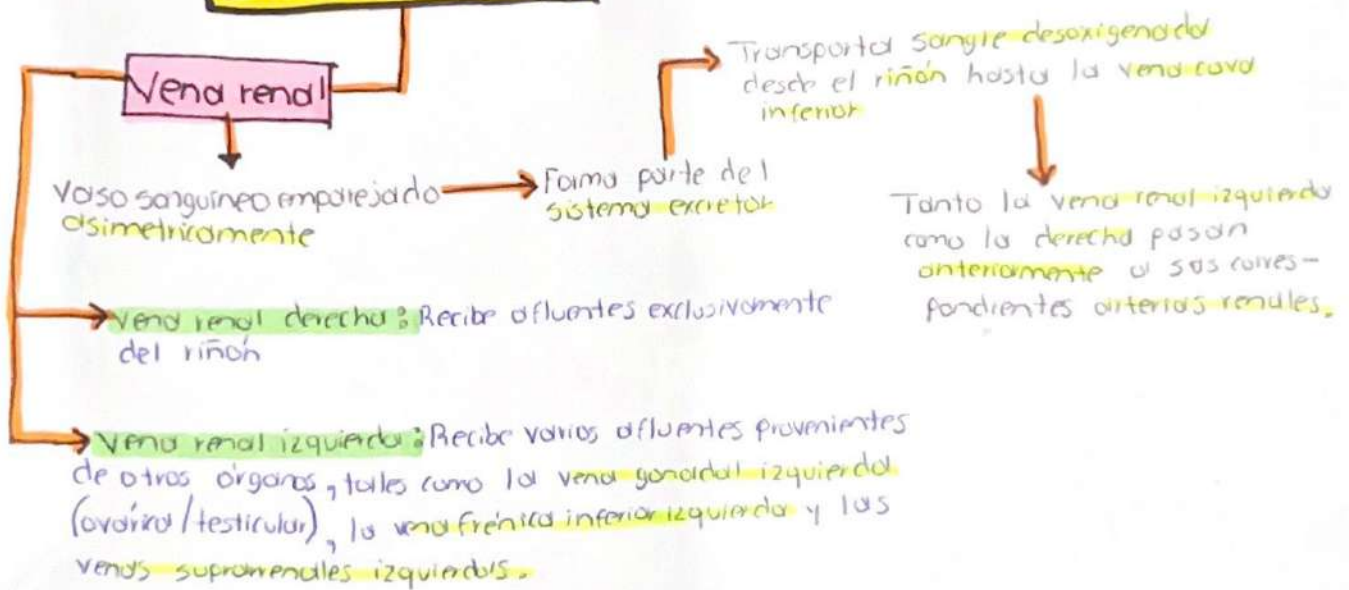 Vena renal
Vaso sanguíneo emparejado
asimetricamente
Forma parte del
sistema excretor
Transporta sangre desoxigenada
desde el riñón hasta la vena cava
inferior
Tanto la vena renal izquierda
como la derecha pasan
anteriormente a sus corres-
pondientes arterias renales.
Vena renal derecha: Recibe afluentes exclusivamente
del riñón
Vena renal izquierda: Recibe varios afluentes provenientes
de otros órganos, tales como la vena gonadal izquierda
(ovárica/testicular), la vena frénica inferior izquierda y las
venas suprarrenales izquierdas.